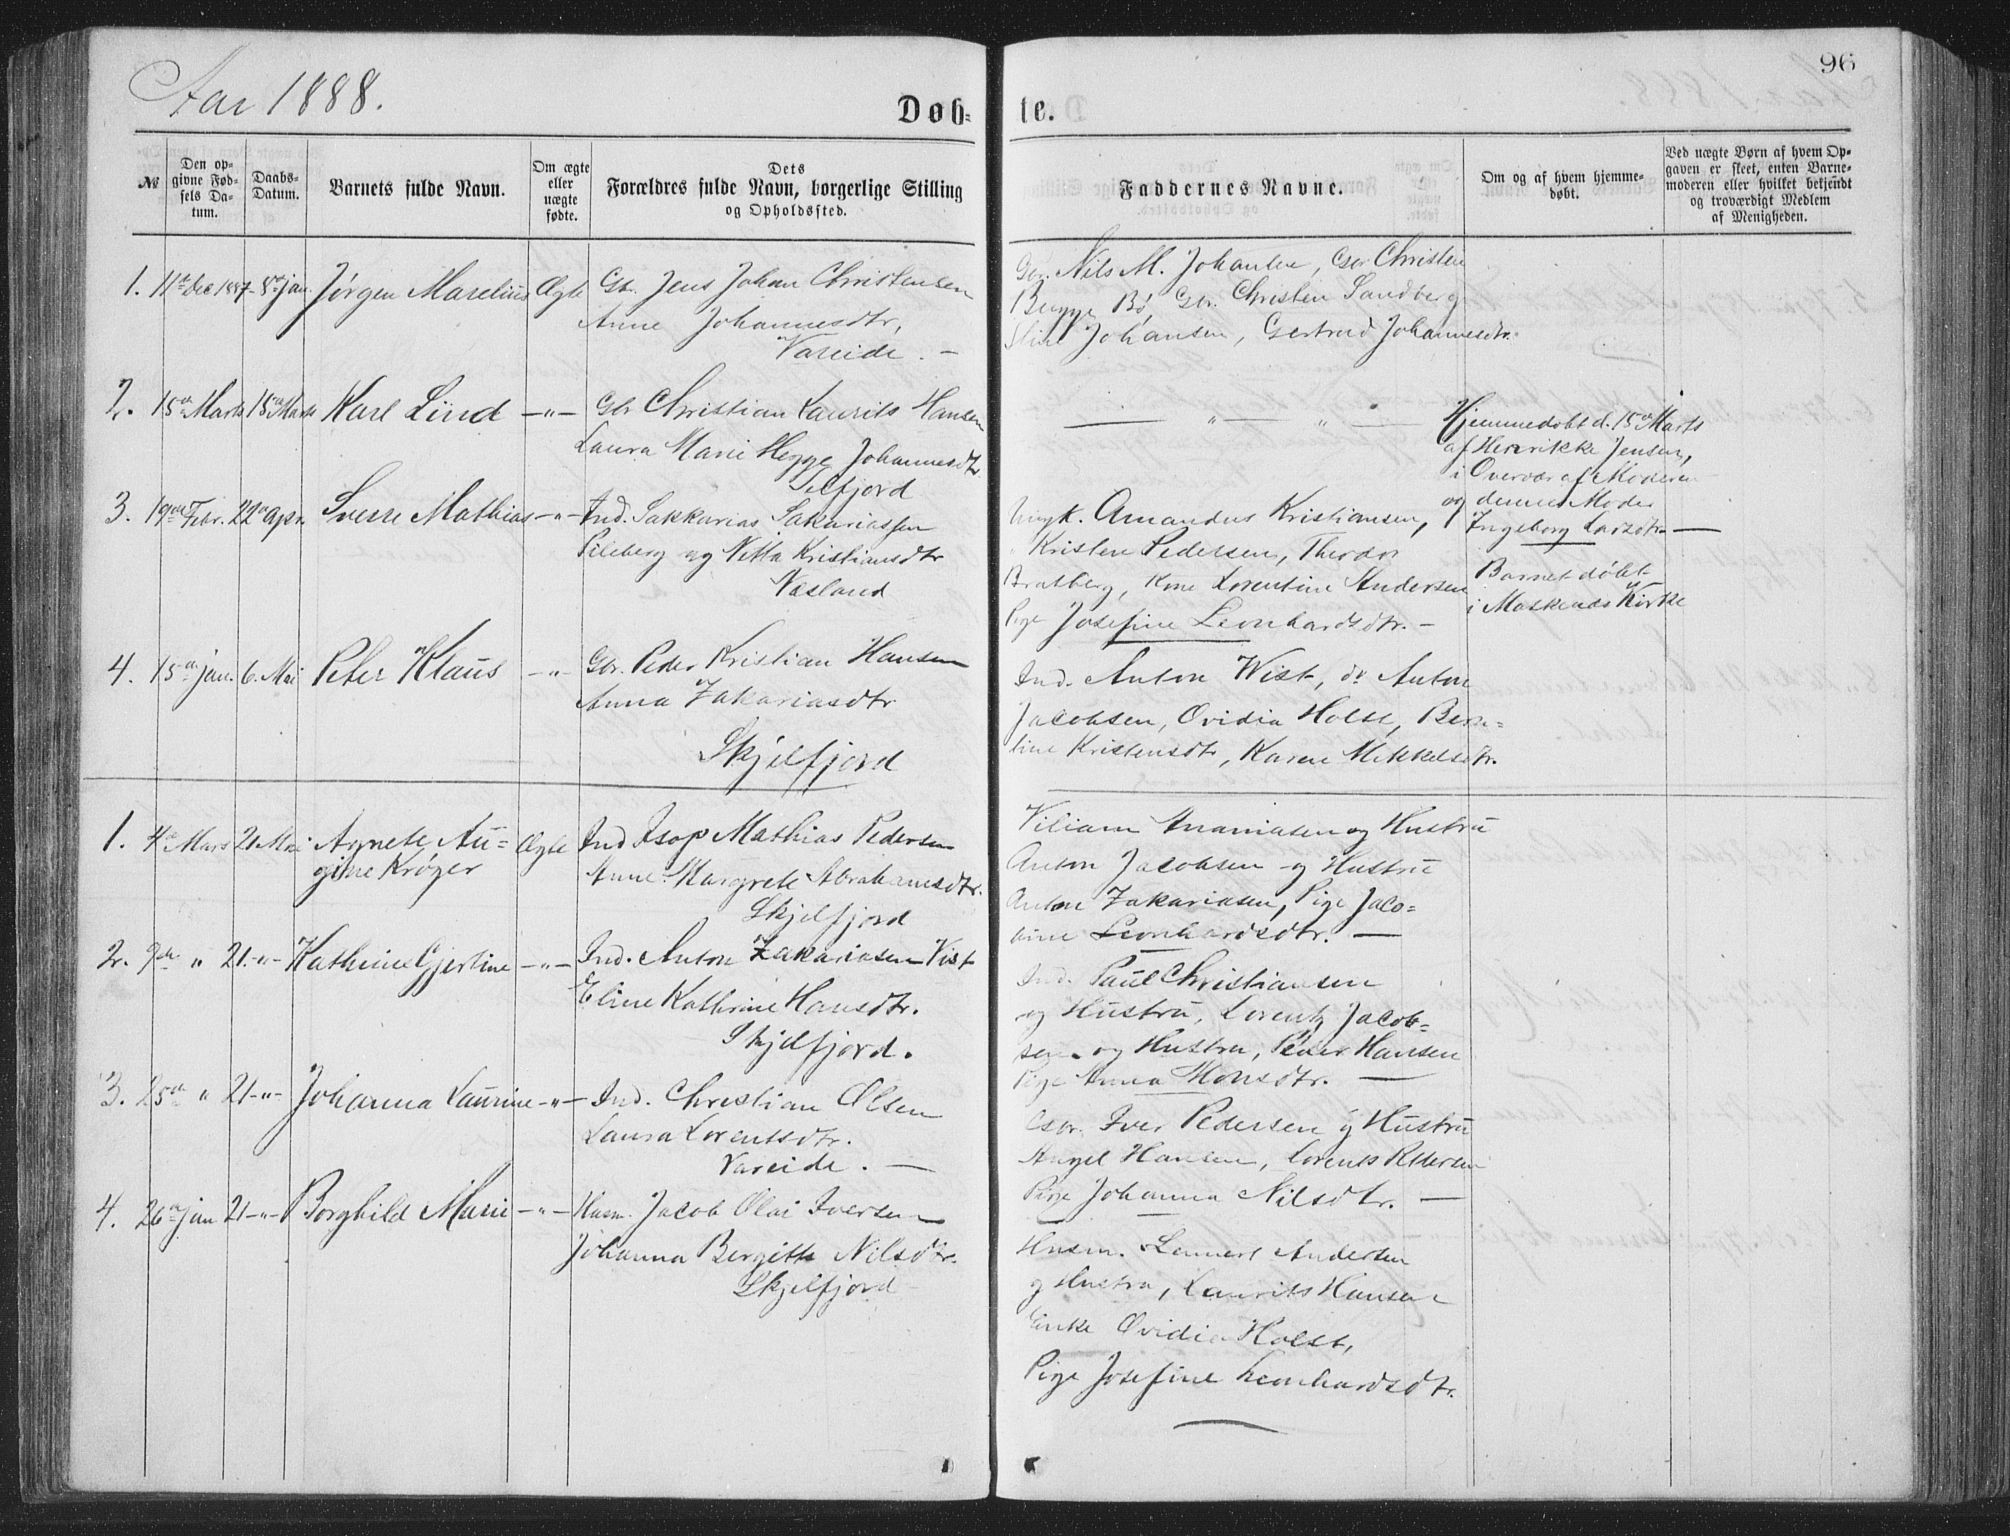 96
Aar 1888.
Døb- te.
No
Den opgivne Fødsels Datum.
Daabs-Datum.
Barnets fulde Navn.
Om ægte eller uægte fødte.
Dets Forældres fulde Navn, borgerlige Stilling og Opholdssted.
Faddernes Navne.
Om og af hvem hjemmedøbt.
Ved uægte Børn af hvem Opgaven er skeet, enten Barnemoderen eller hvilket bekjendt og troværdigt Medlem af Menigheden.
1. 11te Dec 1887 8de jan Jørgen Marelius Ægte Gbr. Jens Johan Christensen
Anne Johannesdtr,
Vareide. —
Gbr. Nils M. Johansen, Gbr Christen
Bugge Bø, Gbr. Christen Sandberg
Stine Johansen, Gertrud Johannesdtr.
2. 15de Marts 15de Marts Karl Lind —"— Gbr Christian Laurits Hansen
Laura Marie Hegge Johannesdtr
Selfjord
— " — " —
Hjemmedøbt d. 15de Marts
af Henrikke Jensen,
i Overvær af Moderen
og dennes Moder
Ingeborg Larsdtr. —
3. 19de Febr. 22de Apr. Sverre Mathias —"— Ind. Sakkarias Sakariassen
Pileberg og Netta Kristiansdtr
Næsland
Ungk. Amandus Kristiansen,
" Kristen Pedersen, Theodor
Bratberg, Kone Lorentine Andersen
Pige Josefine Leonhardsdtr. —
Barnet døbt
i Moskenes Kirke
4. 15de jan. 6. Mai Peter Klaus —"— Gbr. Peder Kristian Hansen
Anna Zakariasdtr
Skjelfjord
Ind. Anton Wist, do Anton
Jacobsen, Ovidia Holst, Bern-
tine Kristensdtr, Karen Mikkelsdtr.
1. 4de Mars 21 Mai Agnete Au-
gine Krøger Ægte Ind Esop Mathias Pedersen
Anne Margrete Abrahamsdtr.
Skjelfjord
Viliam Ananiasen og Hustru
Anton Jacobsen og Hustru
Anton Zakariasen, Pige Jaco-
bine Leonhardsdtr. —
2. 9de " 21 —"— Kathrine Gjertine —"— Ind. Anton Zakariasen Vist
Eline Kathrine Hansdtr.
Skjelfjord.
Ind. Paul Christiansen
og Hustru, Lorentz Jacob-
sen og Hustru, Peder Hansen
Pige Anna Monsdtr. —
3. 25de " 21 —"— Johanna Laurine —"— Ind. Christian Olsen
Laura Lorentsdtr.
Vareide. —
Gbr. Iver Pedersen og Hustru
Angel Hansen, Lorents Pedersen
Pige Johanna Nilsdtr. —
4. 26de jan 21 —"— Borghild Marie —"— Husm. Jacob Olai Iversen
Johanna Bergitte Nilsdtr.
Skjelfjord
Husm. Lennert Andersen
og Hustru, Laurits Hansen
Enke Ovidia Holst,
Pige Josefine Leonhardsdtr.